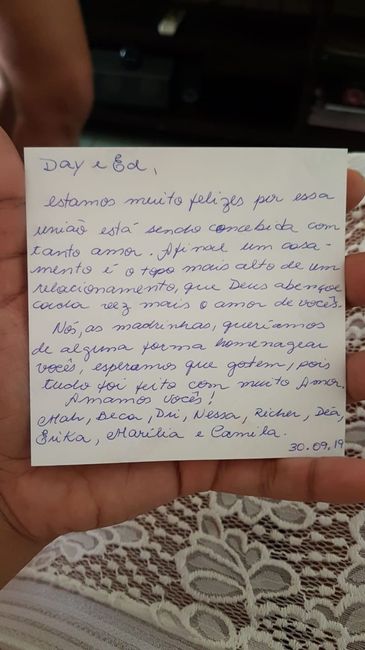 Day e Ed,
estamos muito felizes por essa
união está sendo concebida com
tanto amor. Afinal um casa-
mento é o topo mais alto de um
relacionamento, que Deus abençoe
cada vez mais o amor de vocês.
Nós, as madrinhas, queríamos
de alguma forma homenagear
vocês, esperamos que gotem, pois
tudo foi feito com muito Amor.
Amamos vocês!
Mah, Beca, Dri, Nessa, Richer, Déa,
Erika, Marília e Camila.
30.09.19